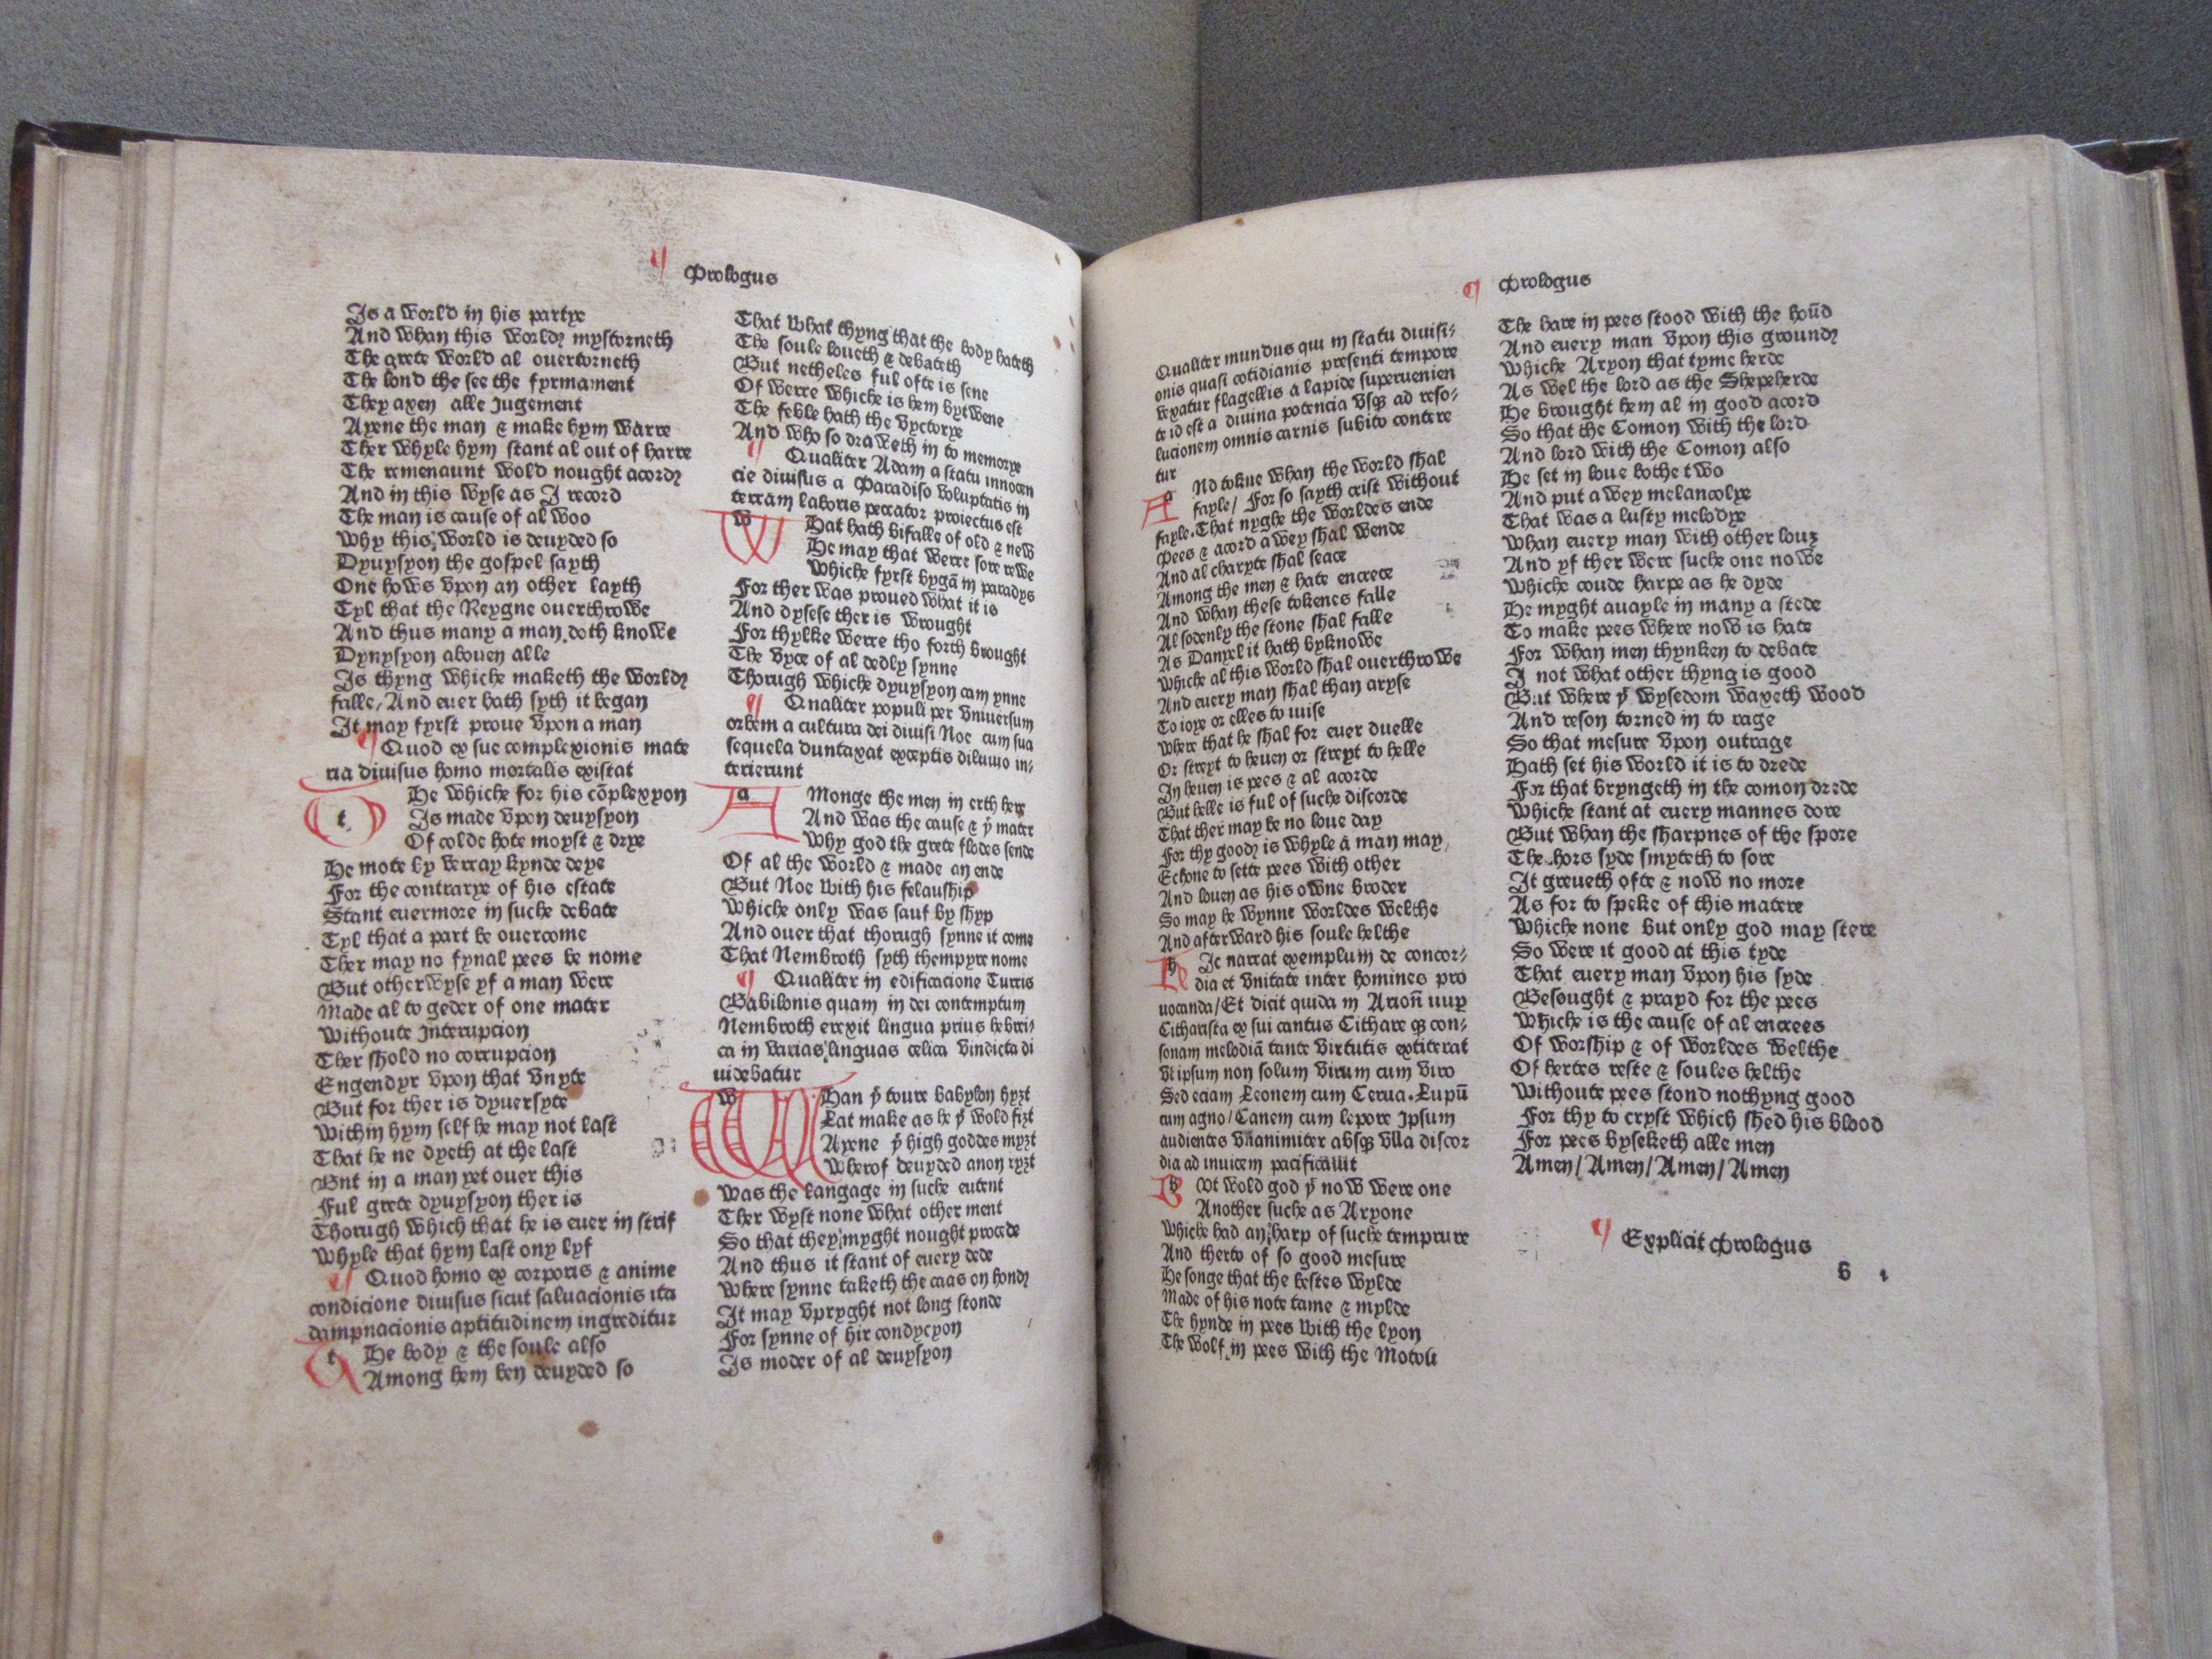 ¶ Prologus
Is a world in his partye
And whan this world mystorneth
The grete world al ouertorneth
The lond the see the fyrmament
They axen alle Jugement
Ayene the man & make hym warre
Ther whyle hym stant al out of harre
The remenaunt wold nought acord
And in this wyse as I record
The man is cause of al woo
Why this world is deuyded so
Dyuysyon the gospel sayth
One hows vpon an other layth
Tyl that the Reygne ouerthrowe
And thus many a man doth knowe
Dynysyon abouen alle
Is thyng whiche maketh the world
falle, And euer hath syth it began
It may fyrst proue vpon a man
¶ Quod ex sue complexionis mate
ria diuisus homo mortalis existat
t He whiche for his cõplexyon
Is made vpon deuysyon
Of colde hote moyst & drye
He mote by verray kynde deye
For the contrarye of his estate
Stant euermore in suche debate
Tyl that a part be ouercome
Ther may no fynal pees be nome
But otherwyse yf a man were
Made al to geder of one mater
Withoute Interupcion
Ther shold no corrupcion
Engendyr vpon that vnyte
But for ther is dyuersyte
Within hym self he may not last
That he ne dyeth at the last
But in a man yet ouer this
Ful grete dyuysyon ther is
Thorugh which that he is euer in strif
Whyle that hym last ony lyf
¶ Quod homo ex corporis & anime
condicione diuisus sicut saluacionis ita
dampnacionis aptitudinem ingreditur
t He body & the soule also
Among hem ben deuyded so
That what thyng that the body hateth
The soule loueth & debateth
But netheles ful ofte is sene
Of werre whiche is hem bytwene
The feble hath the vyctorye
And who so draweth in to memorye
¶ Qualiter Adam a statu innocen
cie diuisus a Paradiso voluptatis in
terram laboris peccator proiectus est
w Hat hath bifalle of old & new
He may that werre sore rewe
Whiche fyrst bygã in paradys
For ther was proued what it is
And dysese ther is wrought
For thylke werre tho forth brought
The vyce of al dedly synne
Thorugh whiche dyuysyon cam ynne
¶ Qualiter populi per vniuersum
orbem a cultura dei diuisi Noe cum sua
sequela duntaxat exceptis diluuio in⸗
terierunt
a Monge the men in erth here
And was the cause & yͤ mater
Why god the grete flodes sende
Of al the world & made an ende
But Noe with his felauship
Whiche only was sauf by shyp
And ouer that thorugh synne it come
That Nembroth syth thempyre nome
¶ Qualiter in edificacione Turris
Babilonis quam in dei contemptum
Nembroth erexit lingua prius hebrei⸗
ca in varias linguas celica vindicta di
uidebatur
w Han yͤ toure babylon hyȝt
Lat make as he yͭ wold fiȝt
Ayene yͤ high goddes myȝt
Wherof deuyded anon ryȝt
Was the langage in suche entent
Ther wyst none what other ment
So that they myght nought procede
And thus it stant of euery dede
Where synne taketh the caas on hond
It may vpryght not long stonde
For synne of hir condycyon
Is moder of al deuysyon
¶ Prologus
Qualiter mundus qui in statu diuisi⸗
onis quasi cotidianis presenti tempore
vexatur flagellis a lapide superuenien
te id est a diuina potencia vsqꝫ ad reso⸗
lucionem omnis carnis subito contere
tur
a Nd tokne whan the world shal
fayle/ For so sayth crist without
fayle. That nyghe the worldes ende
Pees & acord awey shal wende
And al charyte shal seace
Among the men & hate encrece
And whan these tokenes falle
Al sodenly the stone shal falle
As Danyel it hath byknowe
Whiche al this world shal ouerthrowe
And euery man shal than aryse
To ioye or elles to iuise
Where that he shal for euer duelle
Or streyt to heuen or streyt to helle
In heuen is pees & al acorde
But helle is ful of suche discorde
That ther may be no loue day
For thy good is whyle a man may
Echone to sette pees with other
And louen as his owne broder
So may he wynne worldes welthe
And afterward his soule helthe
h Ic narrat exemplum de concor⸗
dia et vnitate inter homines pro
uocanda/ Et dicit quidã in Arion nuꝑ
Citharista ex sui cantus Cithare qꝫ con⸗
sonam melodiã tante virtutis extiterat
vt ipsum non solum virum cum viro
Sed eciam Leonem cum Cerua. Lupũ
cum agno/ Canem cum lepore Ipsum
audientes vnanimiter absqꝫ vlla discor
dia ad inuicem pacificauit
b Vt wold god yͭ now were one
Another suche as Aryone
Whiche had an harp of suche temprure
And therto of so good mesure
He songe that the bestes wylde
Made of his note tame & mylde
The hynde in pees with the lyon
The wolf in pees with the Moton
¶ Prologus
The hare in pees stood with the hoũd
And euery man vpon this ground
Whiche Aryon that tyme herde
As wel the lord as the Shepeherde
He brought hem al in good acord
So that the Comon with the lord
And lord with the Comon also
He set in loue bothe two
And put awey melancolye
That was a lusty melodye
Whan euery man with other louȝ
And yf ther were suche one nowe
Whiche coude harpe as he dyde
He myght auayle in many a stede
To make pees where now is hate
For whan men thynken to debate
I not what other thyng is good
But where yͭ wysedom waxeth wood
And reson torned in to rage
So that mesure vpon outrage
Hath set his world it is to drede
For that bryngeth in the comon drede
Whiche stant at euery mannes dore
But whan the sharpnes of the spore
The hors syde smyteth to sore
It greueth ofte & now no more
As for to speke of this matere
Whiche none but only god may stere
So were it good at this tyde
That euery man vpon his syde
Besought & prayd for the pees
Whiche is the cause of al encrees
Of worship & of worldes welthe
Of hertes reste & soules helthe
Withoute pees stond nothyng good
For thy to cryst which shed his blood
For pees byseketh alle men
Amen/ Amen/ Amen/ Amen
¶ Explicit Prologus
b 1